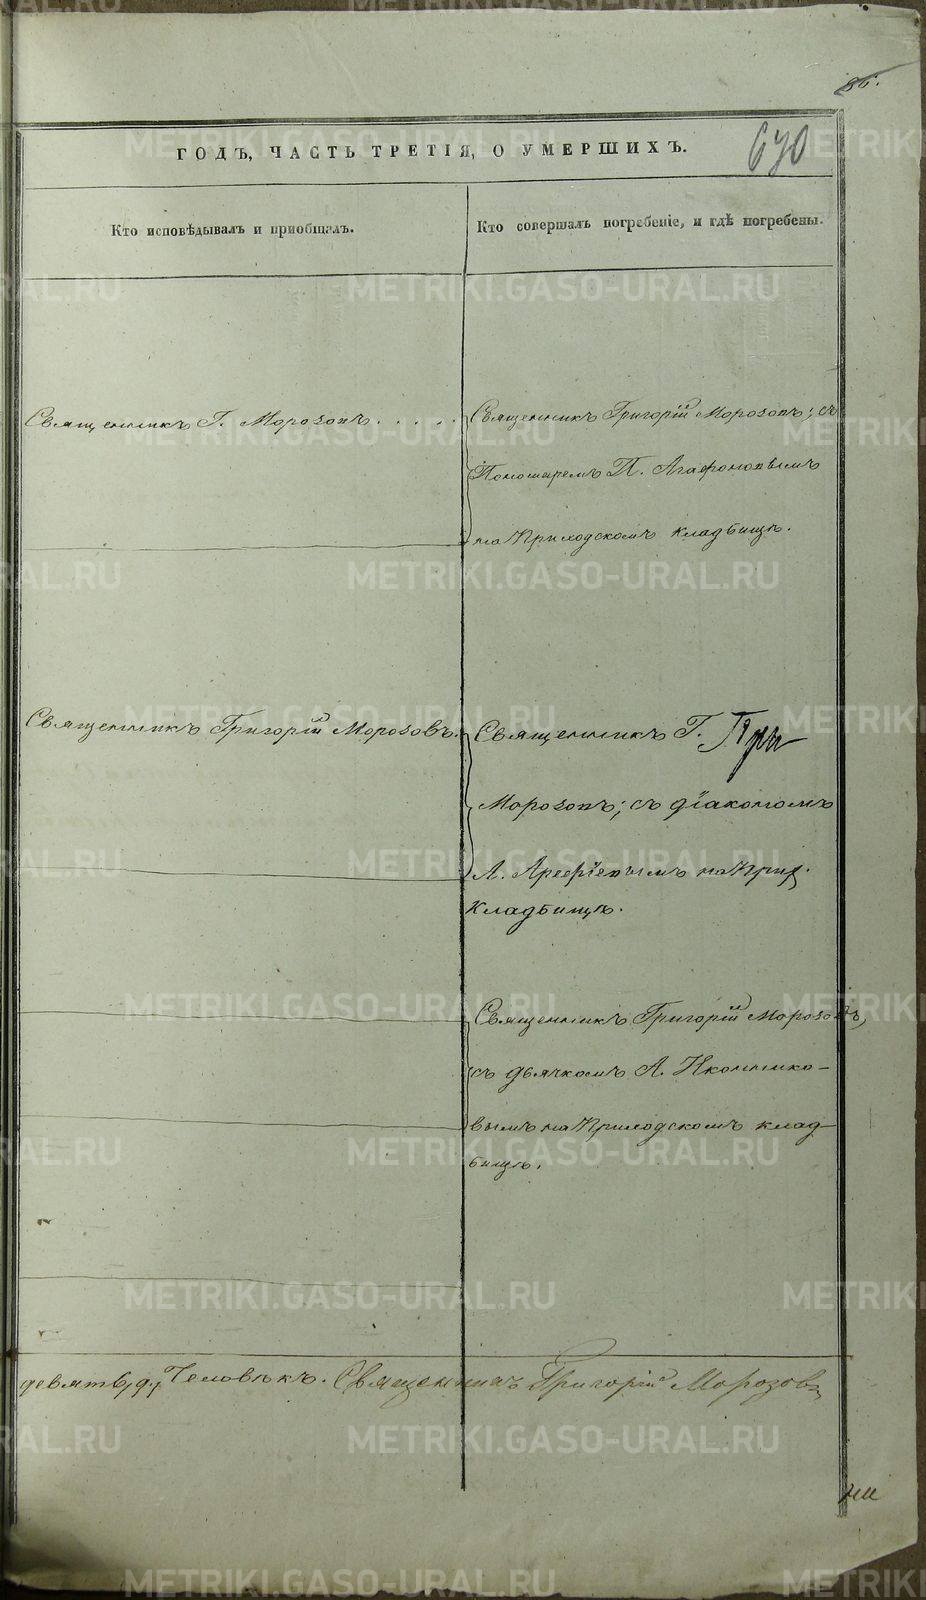 86.
ГОДЪ, ЧАСТЬ ТРЕТІЯ, О УМЕРШИХЪ.
670
Кто исповѣдывалъ и пріобщалъ.
Кто совершалъ погребеніе, и гдѣ погребены.
Священникъ Г. Морозовъ.....
Священникъ Григорій Морозовъ; съ
Пономаремъ П. Агафоновымъ
на Приходскомъ кладбищѣ.
Священникъ Григорій Морозовъ.
Священникъ Г.
Морозовъ; съ діакономъ
А. Арефьевымъ на Прих.
Кладбищѣ.
Священникъ Григорій Морозовъ,
съ дьячкомъ А. Иконнико-
вымъ на Приходскомъ клад-
бищѣ.
девять (9) Человѣкъ. Священникъ Григорій Морозовъ
METRIKI.GASO-URAL.RU